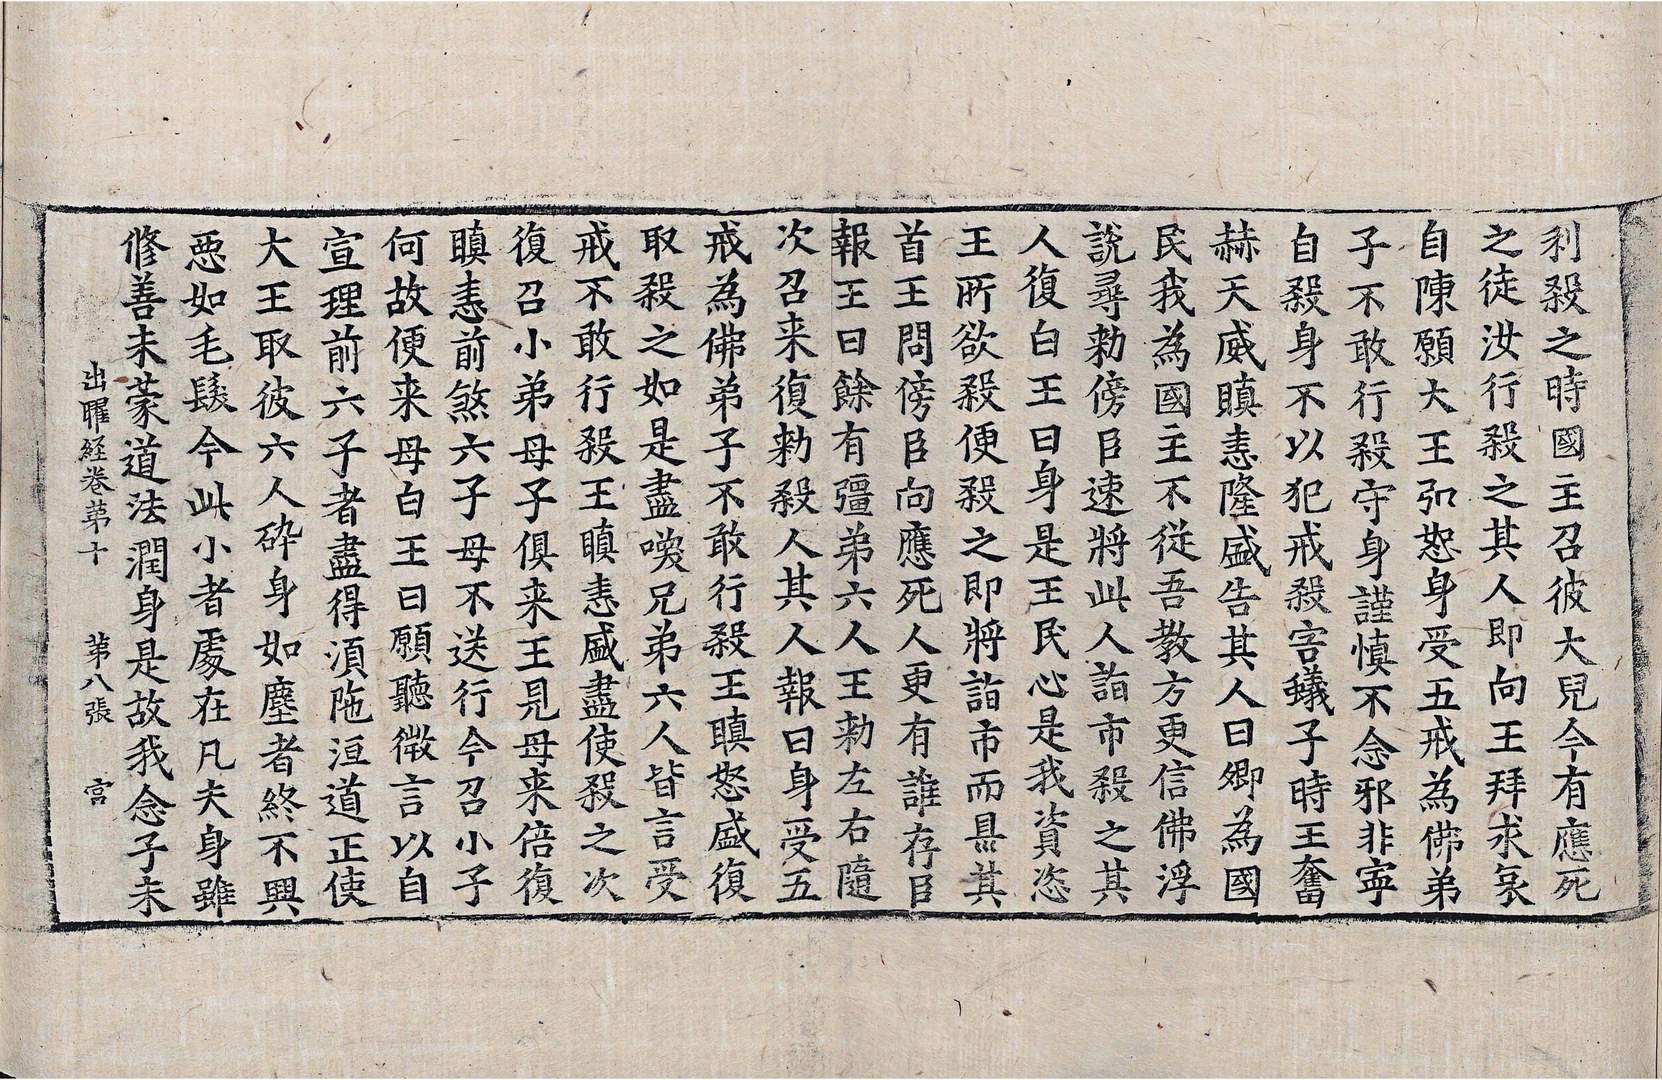 利殺之時國主召彼大兒今有應死
之徒汝行殺之其人即向王拜求哀
自陳願大王弘恕身受五戒為佛弟
子不敢行殺守身謹慎不念邪非寧
自殺身不以犯戒殺害蟻子時王奮
赫天威瞋恚隆盛告其人曰卿為國
民我為國主不從吾教方更信佛浮
說尋勑傍臣速將此人詣市殺之其
人復白王曰身是王民心是我資恣
王所欲殺便殺之即將詣市而梟其
首王問傍臣向應死人更有誰存臣
報王曰餘有彊弟六人王勑左右隨
次召来復勑殺人其人報曰身受五
戒為佛弟子不敢行殺王瞋怒盛復
取殺之如是盡喚兄弟六人皆言受
戒不敢行殺王瞋恚盛盡使殺之次
復召小弟母子俱来王見母来倍復
瞋恚前煞六子母不送行今召小子
何故便来母白王曰願聽微言以自
宣理前六子者盡得須陁洹道正使
大王取彼六人碎身如塵者終不興
惡如毛髮今此小者處在凡夫身雖
修善未蒙道法潤身是故我念子未
出曜経卷苐十 苐八張 宫